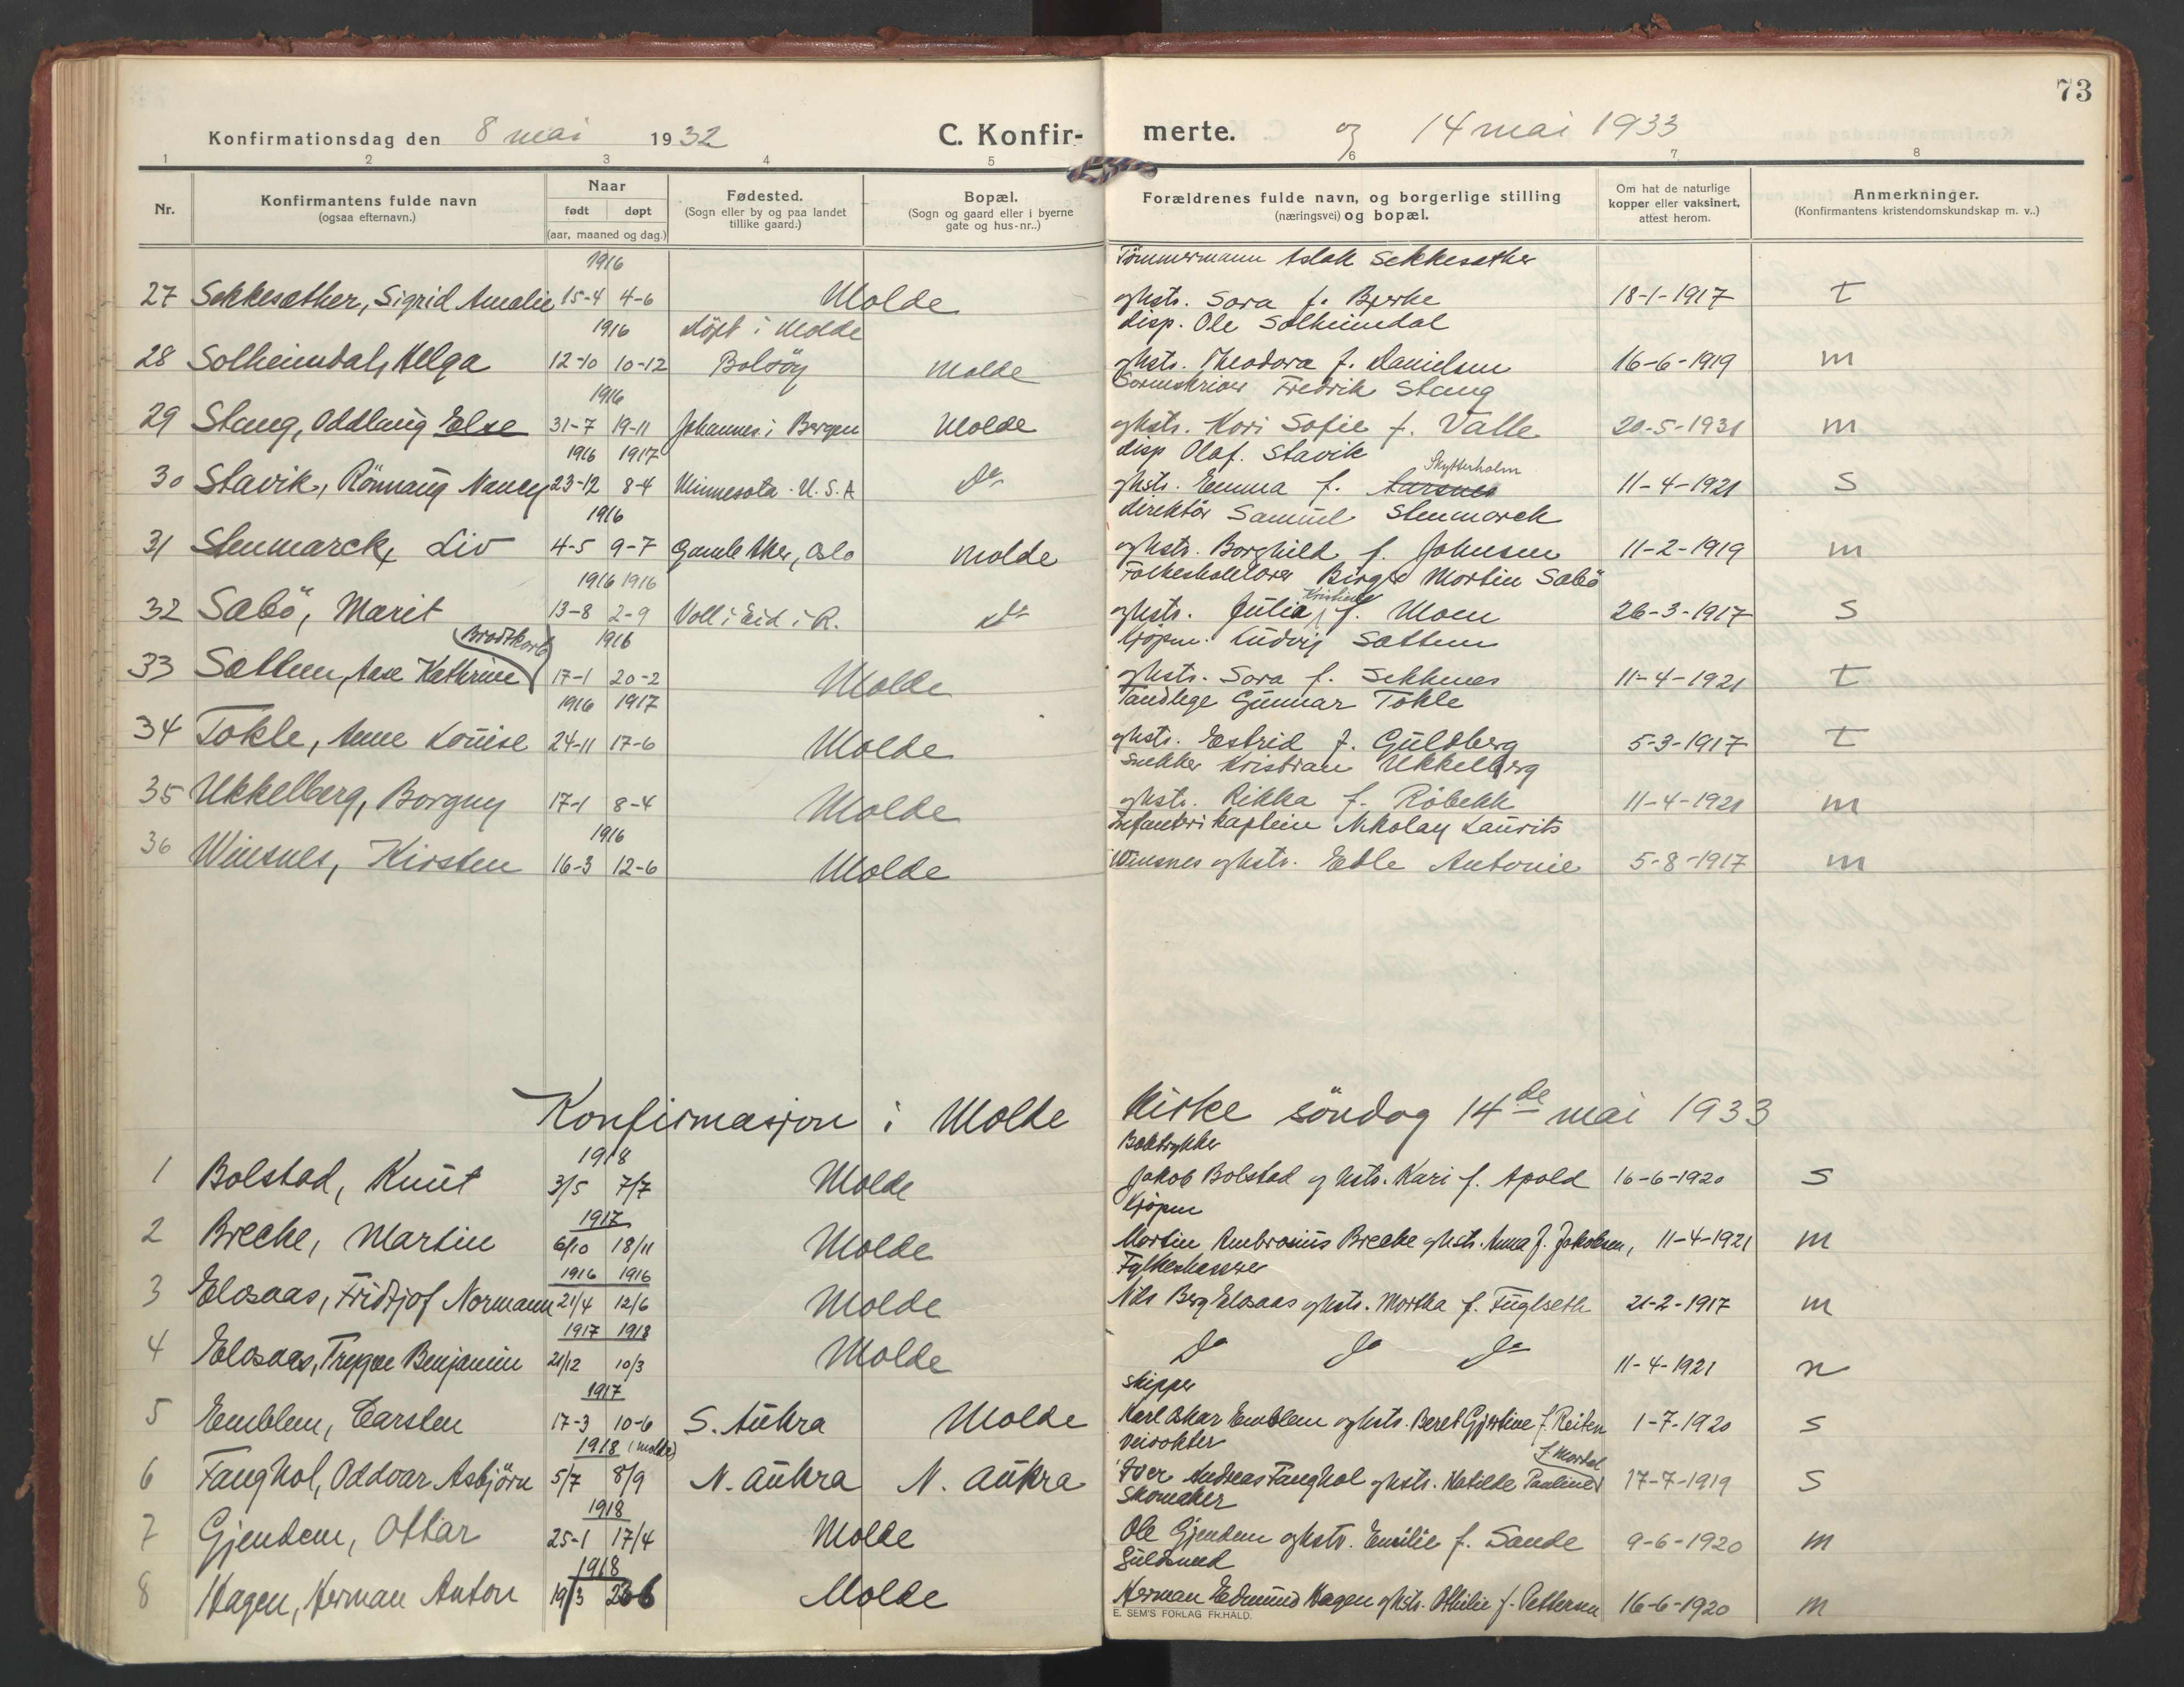 73
Konfirmationsdag den 8 mai 1932 C. Konfir- merte. og 14 mai 1933
1 2 3 4 5 6 7 8
Nr.
Konfirmantens fulde navn
(ogsaa efternavn.)
Naar
født døpt
(aar, maaned og dag.)
Fødested.
(Sogn eller by og paa landet
tillike gaard.)
Bopæl.
(Sogn og gaard eller i byerne
gate og hus-nr..)
Forældrenes fulde navn, og borgerlige stilling
(næringsvei) og bopæl.
Om hat de naturlige
kopper eller vaksinert,
attest herom.
Anmerkninger.
(Konfirmantens kristendomskundskap m. v..)
1916 Tømmermann Aslak Sekkesæther
27 Sekkesæther, Sigrid Amalie 15-4 4-6 Molde oghstr. Sara f. Bjerke 18-1-1917 T
1916 døpt i Molde disp. Ole Solheimdal
28 Solheimdal, Helga 12-10 10-12 Bolsöy Molde oghstr. Theodora f. Danielsen 16-6-1919 m
1916 Sorenskriver Fredrik Stang
29 Stang, Oddlaug Else 31-7 19-11 Johannes i Bergen Molde oghstr. Kari Sofie f. Valle 20-5-1931 m
1916 1917 disp Olaf. Stavik Skytterholm
30 Stavik, Rönnaug Nancy 23-12 8-4 Minnesota. U.S.A do oghstr. Emma f. Aarsnes 11-4-1921 S
1916 direktör Samuel Stenmarck
31 Stenmarck, Liv 4-5 9-7 Gamle Aker, Oslo Molde oghstr. Borghild f. Johnsen 11-2-1919 m
1916 1916 Folkeskolelærer Birger Martin Sæbö
32 Sæbö, Marit 13-8 2-9 Voll i Eid i R. do oghstr. Julia Kristine f. Moen 26-3-1917 S
Brodtkorb 1916 Kjøpm. Ludvig Sættem
33 Sættem, Aase Kathrine 17-1 20-2 Molde oghstr. Sara f. Sekkenes 11-4-1921 T
1916 1917 Tandlege Gunnar Tokle
34 Tokle, Anne Louise 24-11 17-6 Molde oghstr. Estrid f. Guldberg 5-3-1917 T
Snekker Kristian Ukkelberg
35 Ukkelberg, Borgny 17-1 8-4 Molde oghstr. Rikka f. Röbekk 11-4-1921 m
1916 Infanterikaptein Nikolay Laurits
36 Winsnes, Kirsten 16-3 12-6 Molde Winsnes oghstr. Edle Antonie 5-8-1917 m
Konfirmasjon i Molde kirke söndag 14de mai 1933
1918 Boktrykker
1 Bolstad, Knut 3/5 7/7 Molde Jakob Bolstad og hstr. Kari f. Apold 16-6-1920 S
1917 Kjöpm
2 Brecke, Martin 6/10 18/11 Molde Martin Ambrosius Brecke oghstr. Anna f. Jakobsen, 11-4-1921 m
1916 1916 Fylkeskasserer
3 Elosaas, Fridtjof Normann 21/4 12/6 Molde Nils Berg Elosaas oghstr. Martha f. Fuglseth 21-2-1917 m
1917 1918
4 Elosaas, Trygve Benjamin 21/12 10/3 Molde Do Do Do 11-4-1921 n
1917 Skipper
5 Emblem, Carsten 17-3 10-6 S. Aukra Molde Karl Oskar Emblem oghstr. Beret Gjertine f. Reiten 1-7-1920 S
1918 (Molde) Veivokter f. Mordal
6 Fanghol, Oddvar Asbjörn 5/7 8/9 N. Aukra N. Aukra Iver Andreas Fanghol oghstr. Matilde Pauline 17-7-1919 S
1918 Skomaker
7 Gjendem, Ottar 25-1 17/4 Molde Ole Gjendem oghstr. Emilie f. Sande 9-6-1920 m
1918 Guldsmed
8 Hagen, Herman Anton 19/3 Molde Herman Edmund Hagen oghstr. Othilie f. Pettersen 16-6-1920 m
E. SEM'S FORLAG FR.HALD.